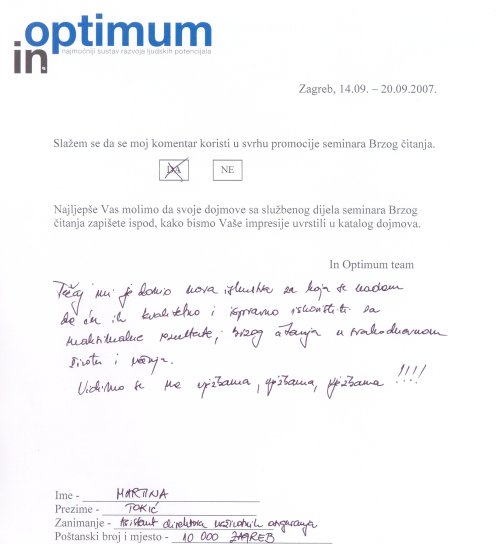 in optimum
najmoćniji sustav razvoja ljudskih potencijala
Zagreb, 14.09. – 20.09.2007.
Slažem se da se moj komentar koristi u svrhu promocije seminara Brzog čitanja.
DA NE
Najljepše Vas molimo da svoje dojmove sa službenog dijela seminara Brzog
čitanja zapišete ispod, kako bismo Vaše impresije uvrstili u katalog dojmova.
In Optimum team
Tečaj mi je donio nova iskustva za koja se nadam
da ću ih kvalitetno i ispravno iskoristiti za
maksimalne rezultate, brzog čitanja u svakodnevnom
životu i učenja.
Vidimo se na vježbama, vježbama, vježbama !!!!
Ime - MARTINA
Prezime - TOKIĆ
Zanimanje - Asistent direktora životnih osiguranja
Poštanski broj i mjesto - 10 000 ZAGREB